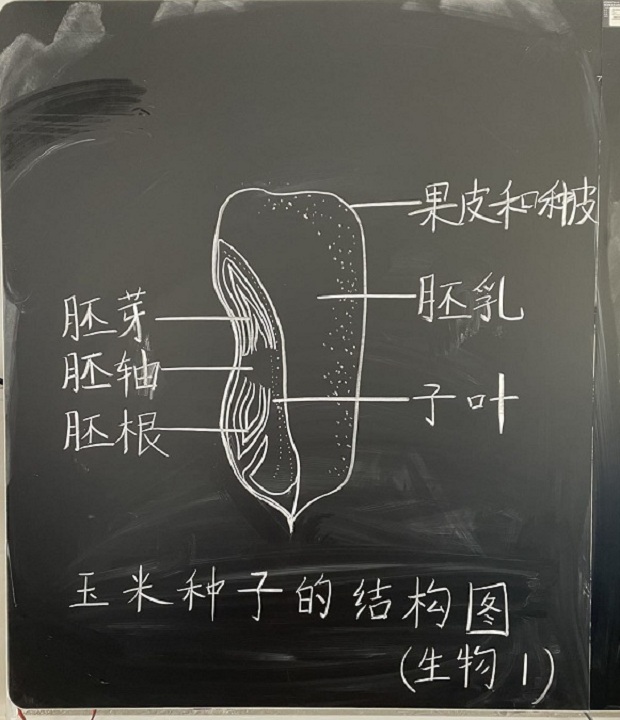 果皮和种皮
胚乳
胚芽
胚轴
子叶
胚根
玉米种子的结构图
(生物1)